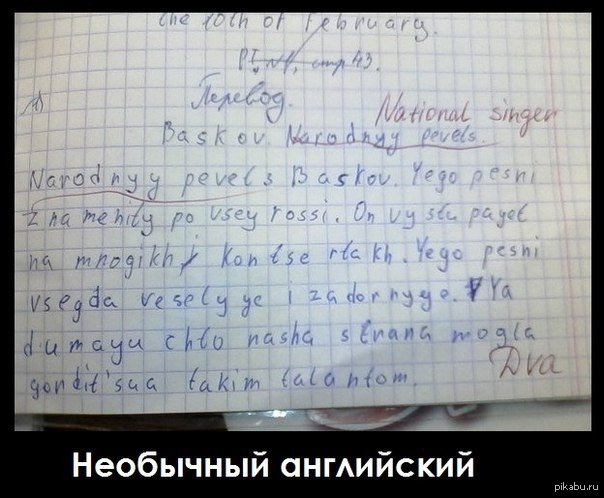 the 10th of February.
P1, №1, стр 43.
Перевод.
1)
National singer
Baskov. Narodnyy pevets.
Narodnyy pevets Baskov. Yego pesni
znamenity po vsey rossi. On vystupayet
na mnogikh kontsertakh. Yego pesni
vsegda veselyye i zadornyye. Ya
dumayu chto nasha strana mogla
gordit'sua takim talantom.
Dva
Необычный английский
pikabu.ru